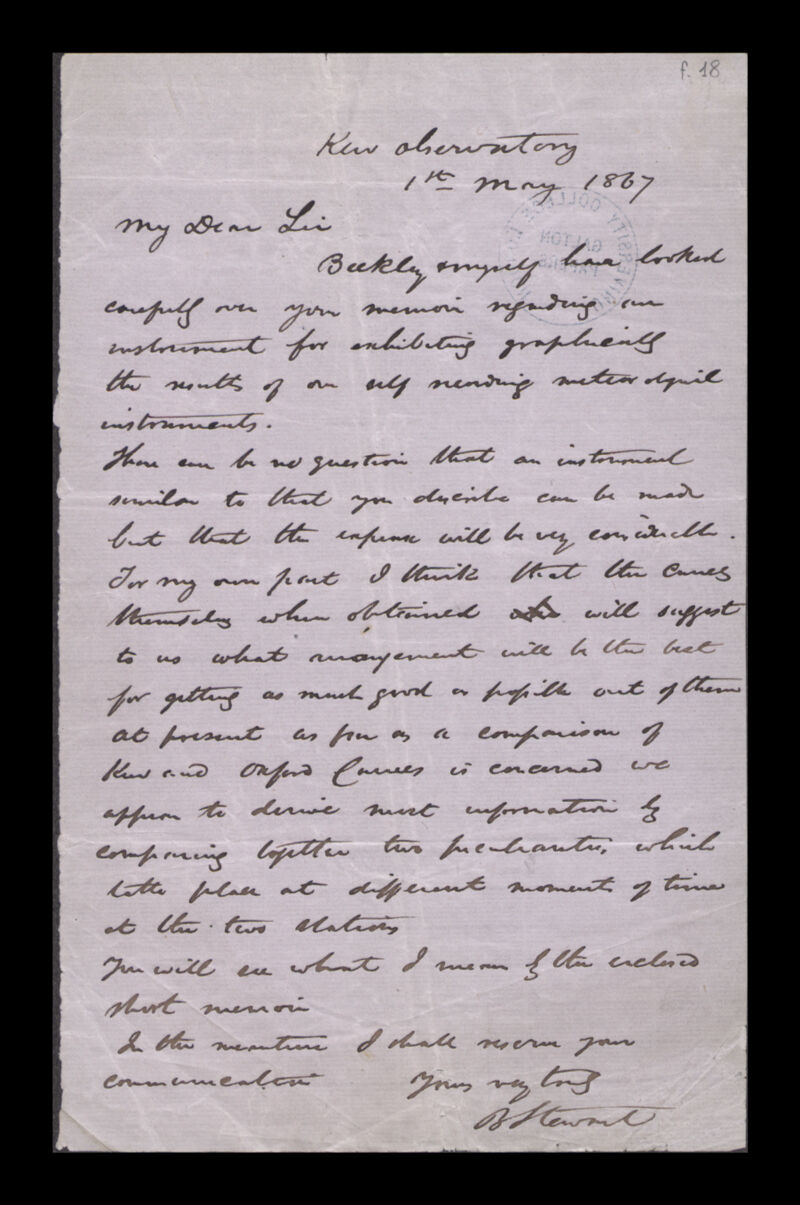 f. 18
Kew Observatory
1th May 1867
My Dear Sir
Beckley & myself have looked
carefully over your memoir regarding an
instrument for exhibiting graphically
the results of our self recording meteorological
instruments.
There can be no question that an instrument
similar to that you describe can be made
but that the expense will be very considerable.
For my own part I think that the curves
themselves when obtained will suggest
to us what arrangement will be the best
for getting as much good as possible out of them
at present as far as a comparison of
Kew and Oxford Curves is concerned we
appear to derive most information by
comparing together two peculiarities, which
take place at different moments of time
at the two stations
You will see what I mean by the enclosed
short memoir
In the meantime I shall reserve your
communication Yours very truly
B Stewart